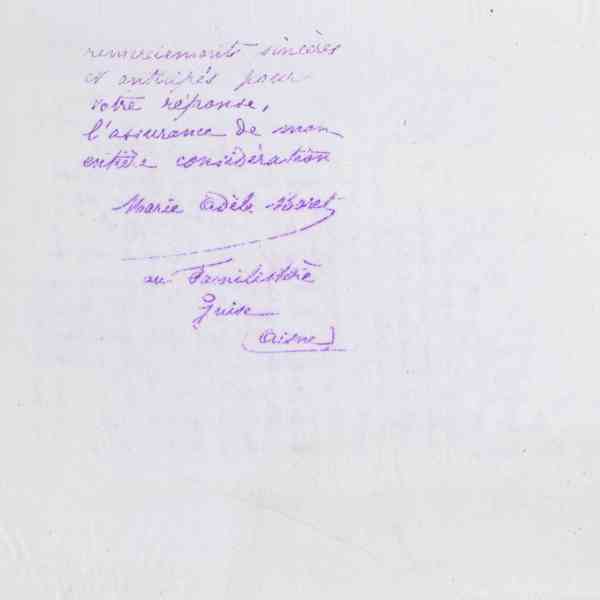 remerciements sincères
et anticipés pour
votre réponse,
l'assurance de mon
entière considération
Marie Adèle Moret
au Familistère
Guise
(Aisne)